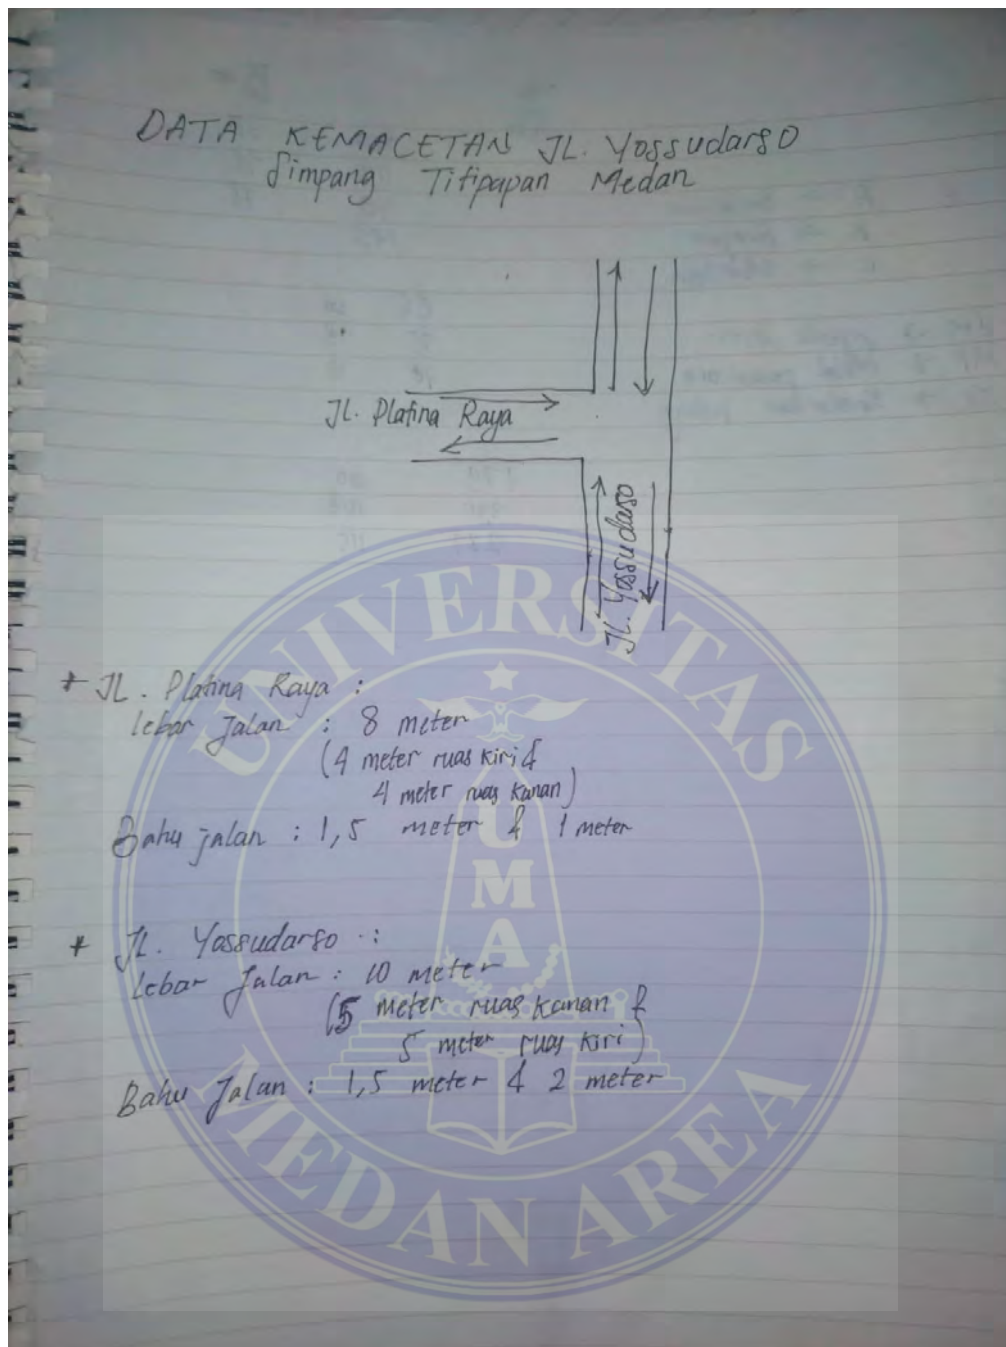 DATA KEMACETAN JL. Yossudarso
Simpang Titipapan Medan
JL. Platina Raya
JL. Yossudarso
* JL. Platina Raya :
Lebar Jalan : 8 meter
(4 meter ruas kiri &
4 meter ruas kanan)
Bahu jalan : 1,5 meter & 1 meter
* JL. Yossudarso :
Lebar Jalan : 10 meter
(5 meter ruas kanan &
5 meter ruas kiri)
Bahu Jalan : 1,5 meter & 2 meter
UNIVERSITAS
UMA
MEDAN AREA